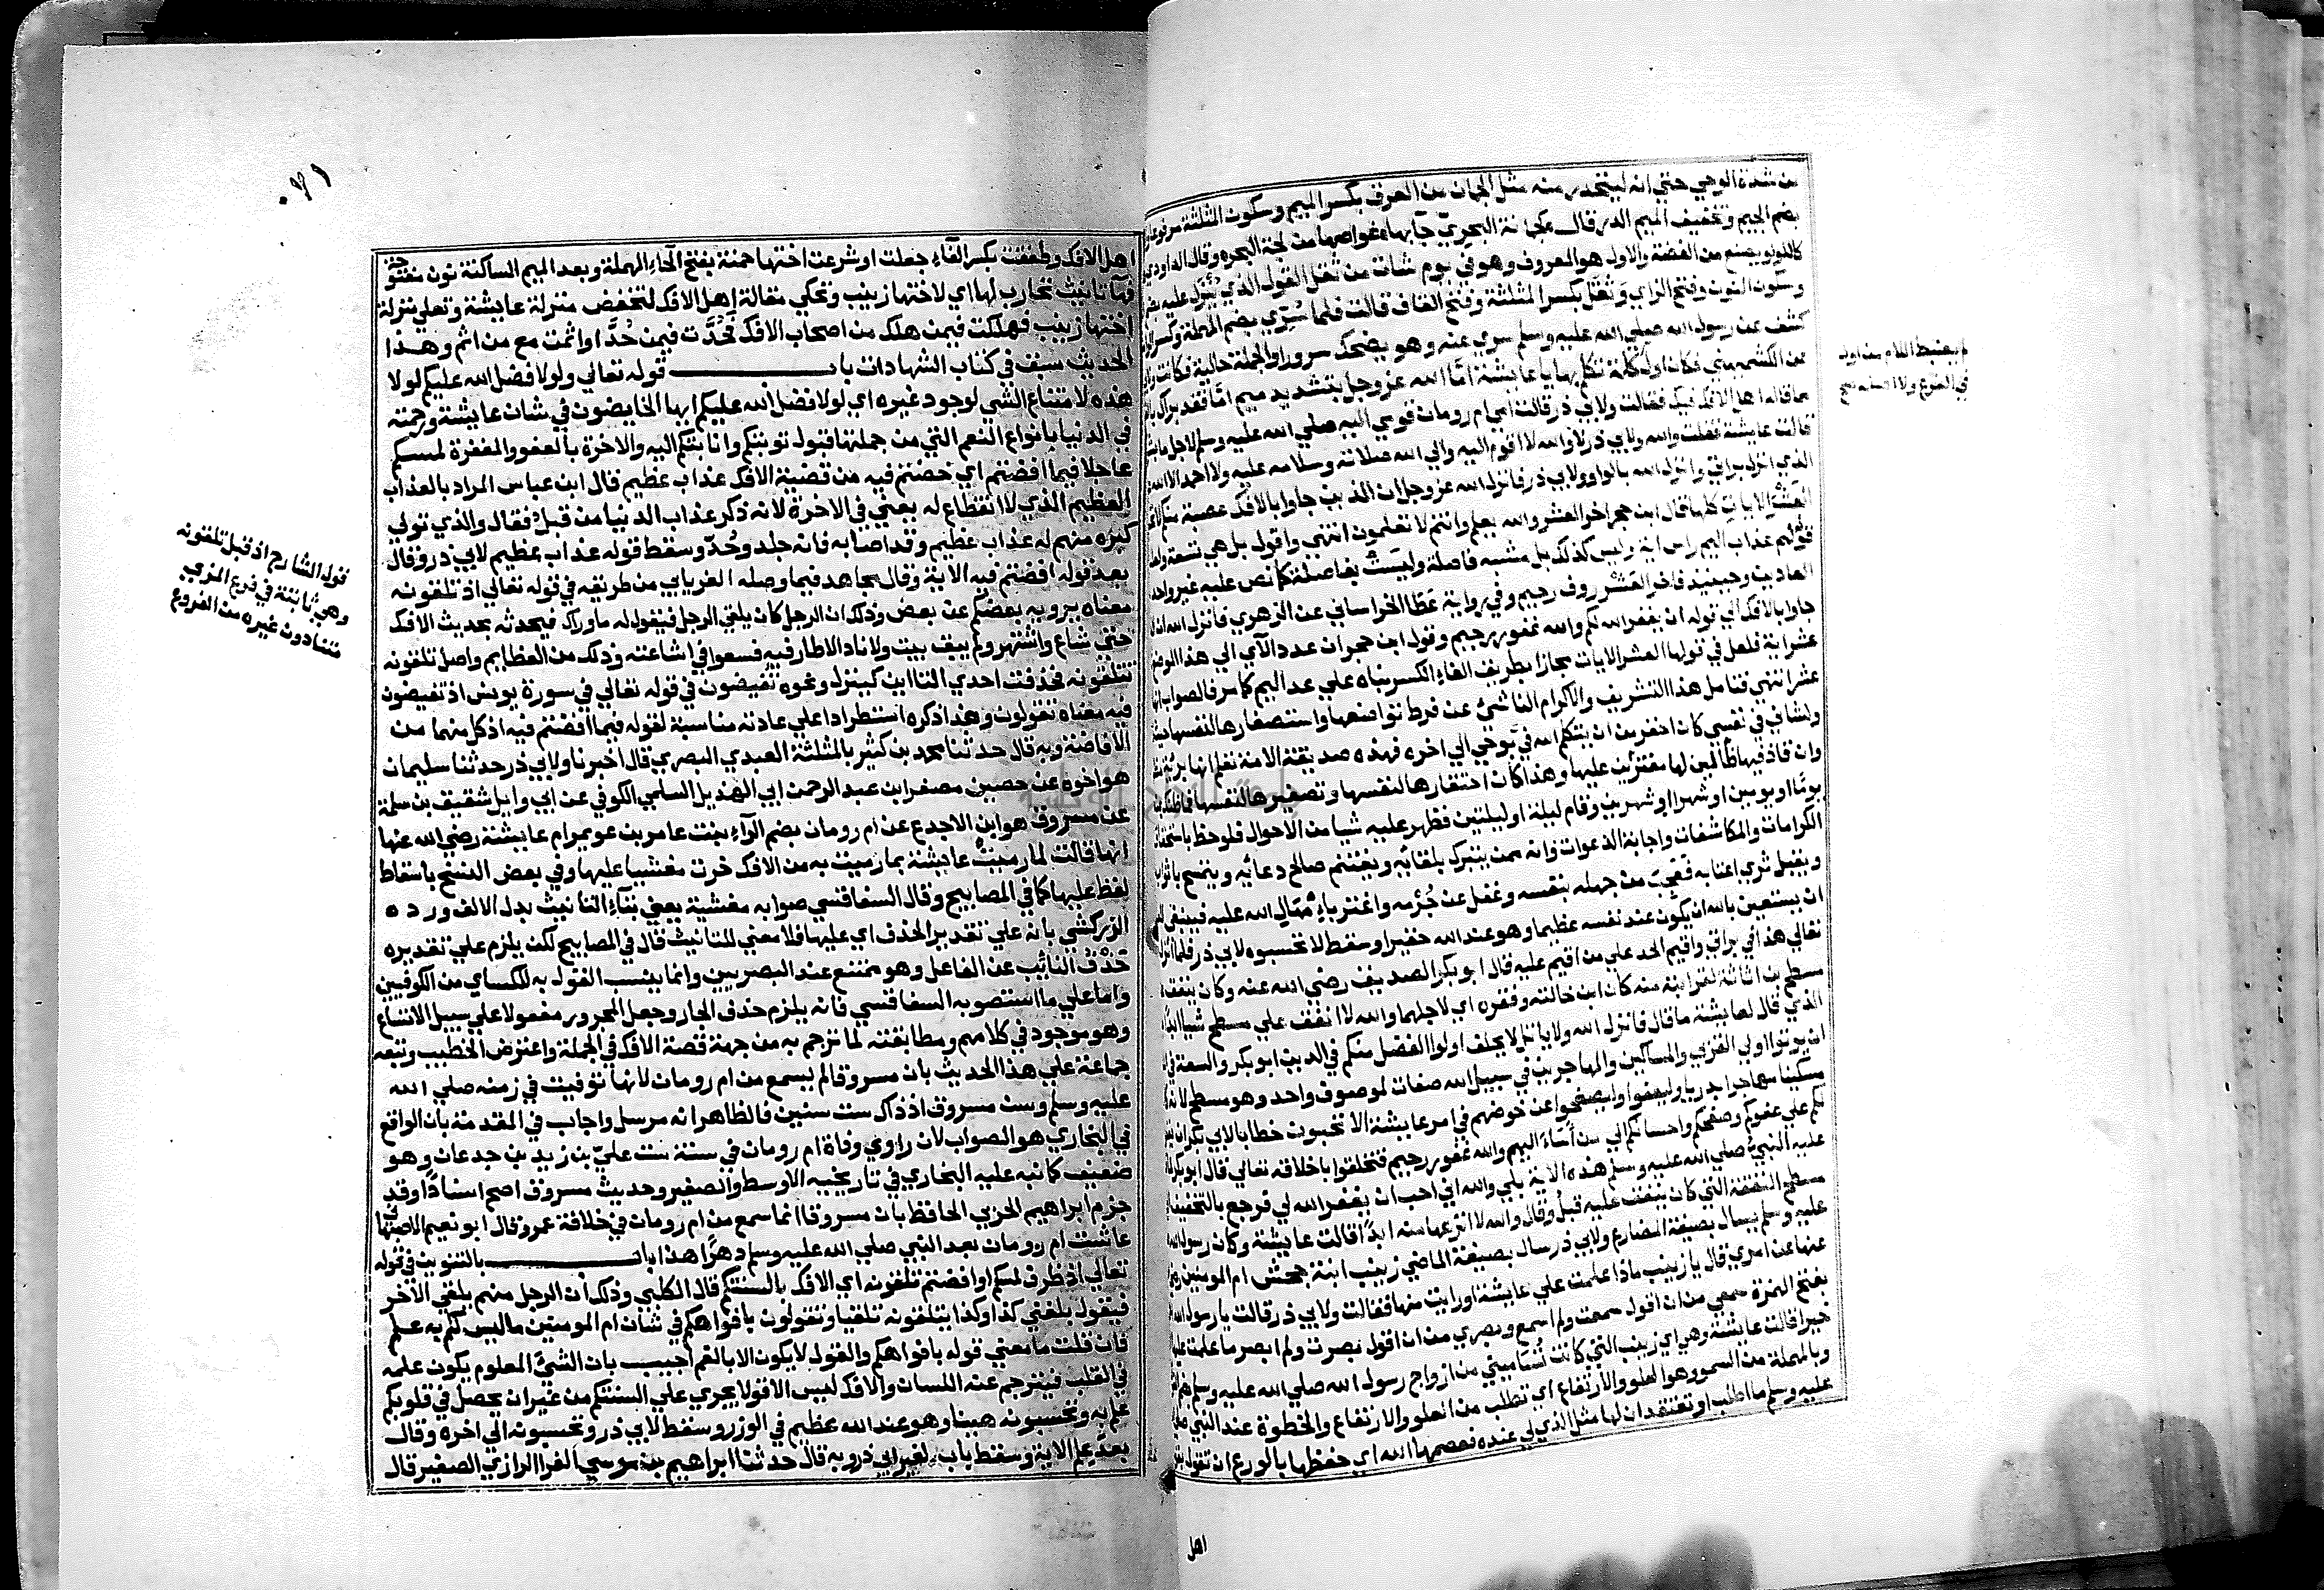 من شدة الوحي حتي انه ليتحدر منه مثل الجمان من العرق بكسر الميم وسكون المثلثة مرفوعا
بضم الجيم وتخفيف الميم الدر قال كجمانة البحري جآبها غواصها من لجة البحر وقال الداودي
كاللولو يصنع من الفضة والاول هو المعروف وهو في يوم شات من ثقل القول الذي ينزل عليه بضم
وسكون النون وفتح الزاي وثقل بكسر المثلثة وفتح القاف قالت فلما سري بضم المهملة وكسر الرا
كشف عن رسول الله صلي الله عليه وسلم سري عنه وهو يضحك سرورا والجملة حالية فكانت
اول كلمة تكلم بها يا عايشة امّا الله عز وجل بتشديد ميم امّا فقد براك
مما قاله اهل الافك فيك فقالت ولابي ذر قالت امي ام رومان قومي اليه صلي الله عليه وسلم لاجل
قالت عايشة فقلت والله ولابي ذر لا والله لا اقوم اليه والي الله صلاته وسلامه عليه ولا احمد الا الله
الذي انزل براتي وانزل الله بالواو ولابي ذر فانزل الله عز وجل ان الذين جاوا بالافك عصبة منكم
العشر الايات كلها قال ابن حجر اخر العشر والله يعلم وانتم لا تعلمون انتهي واقول بل هي تسعة
قولهم عذاب اليم راس اية وليس كذلك بل مشبه فاصلة وليست بفاصلة كما نص عليه غير واحد
العادين وحينيذ فاخر العشر روف رحيم وفي رواية عطا الخراساني عن الزهري فانزل الله ان الذين
جاوا بالافك الي قوله ان يغفر الله لكم والله غفور رحيم وقول ابن حجر ان عدد الآي الي هذا الموضع
عشر اية فلعل في قولها العشر الايات مجازا بطريق الغاء الكسر بناه علي عد اليم كما مر فالصواب انها
عشر انتهي فتامل هذا التشريف والاكرام الناشئ عن فرط تواضعها واستصغارها لنفسها حيث
ولشاني في نفسي كان احقر من ان يتكلم الله في بوحي الي اخره فهذه صديقة الامة تعلم انها بريئة
وان قاذفيها ظالمين لها مفترين عليها وهذا كان احتقارها لنفسها وتصغيرها لنفسها فما ظنك
يومًا او يومين او شهرا او شهرين وقام ليلة او ليلتين فظهر عليه شيا من الاحوال فلوحظ باستحقاق
الكرامات والمكاشفات واجابة الدعوات وانه ممن يتبرك بلقائه ويغتنم صالح دعائه ويتمسح باثوابه
ويقبل ثري اعتابه فعجب من جهله بنفسه وغفل عن جرمه واغتر بامهال الله عليه فينبغي
ان يستعين بالله ان يكون عند نفسه عظيما وهو عند الله حقيرا وسقط لا تحسبوه لابي ذر فلما انزل
تعالي هذا في براتي واقيم الحد علي من اقيم عليه قال ابو بكر الصديق رضي الله عنه وكان ينفق
مسطح بن اثاثة لقرابته منه كان ابن خالته وفقره اي لاجلهما والله لا انفق علي مسطح شيا ابدا
الذي قال لعايشة ما قال فانزل الله ولا ياتل لا يحلف اولوا الفضل منكم في الدين ابو بكر والسعة في
ان يوتوا اولي القربي والمساكين والمهاجرين في سبيل الله صفات لموصوف واحد وهو مسطح لانه
مسكينا مهاجرا بدريا وليعفوا وليصفحوا عن خوضهم في امر عايشة الا تحبون خطابا لابي بكر ان يغفر
لكم علي عفوكم وصفحكم واحسانكم الي من أساء اليهم والله غفور رحيم فتخلقوا باخلاقه تعالي قال ابو بكر
عليه النبي صلي الله عليه وسلم هذه الاية بلي والله اني احب ان يغفر الله لي فرجع بالتخفيف
مسطح النفقة التي كان ينفق عليه قبل وقال والله لا انزعها منه ابدا قالت عايشة وكان رسول الله
عليه وسلم يسال بصيغة المضارع ولابي ذر سال بصيغة الماضي زينب ابنة جحش ام المومنين
عنها عن امري قال يا زينب ماذا علمت علي عايشة او رايت منها فقالت ولابي ذر قالت يا رسول الله
بفتح الهمزة سمعي من ان اقول سمعت ولم اسمع وبصري من ان اقول بصرت ولم ابصر ما علمت عليها
خيرا قالت عايشة وهي اي زينب التي كانت تساميني من ازواج رسول الله صلي الله عليه وسلم
وبالمهملة من السمو وهو العلو والارتفاع اي تطلب من العلو والارتفاع والحظوة عند النبي صلي
عليه وسلم ما اطلب او تعتقد ان لها مثل الذي لي عنده فعصمها الله اي حفظها بالورع ان تقول
اهل
اهل الافك وطفقت بكسر الفاء جعلت او شرعت اختها حمنة بفتح الحاء المهملة وبعد الميم الساكنة نون مفتوحة
فها تانيث تحارب لها اي لاختها زينب وتحكي مقالة اهل الافك لتخفض منزلة عايشة وتعلي منزلة
اختها زينب فهلكت فيمن هلك من اصحاب الافك فحُدّت فيمن حُدّ او اثمت مع من اثم وهذا
الحديث سبق في كتاب الشهادات باب قوله تعالي ولولا فضل الله عليكم لولا
هذه لامتناع الشي لوجود غيره اي لولا فضل الله عليكم ايها الخايضون في شان عايشة ورحمته
في الدنيا بانواع النعم التي من جملتها قبول توبتكم وانابتكم اليه والاخرة بالعفو والمغفرة لمسكم
عاجلا فيما افضتم اي خضتم فيه من قضية الافك عذاب عظيم قال ابن عباس المراد بالعذاب
العظيم الذي لا انقطاع له يعني في الاخرة لانه ذكر عذاب الدنيا من قبل فقال والذي تولي
كبره منهم له عذاب عظيم وقد اصابه فانه جلد وحُدّ وسقط قوله عذاب عظيم لابي ذر وقال
بعد قوله افضتم فيه الاية وقال مجاهد فيما وصله الفريابي من طريقه في قوله تعالي اذ تلقونه
معناه يرويه بعضكم عن بعض وذلك ان الرجل كان يلقي الرجل فيقول له ما وراك فيحدثه بحديث الافك
حتي شاع واشتهر ولم يبق بيت ولا ناد الا طار فيه فسعوا في اشاعته وذلك من العظايم واصل تلقونه
تتلقونه فحذفت احدي التاءين كتنزل ونحوه تفيضون في قوله تعالي في سورة يونس اذ تفيضون
فيه معناه تقولون وهذا ذكره استطرادا علي عادته مناسبة لقوله فيما افضتم فيه اذ كل منهما من
الافاضة وبه قال حدثنا محمد بن كثير بالمثلثة العبدي البصري قال اخبرنا ولابي ذر حدثنا سليمان
هو اخوه عن حصين مصغر ابن عبد الرحمن ابي الهذيل السلمي الكوفي عن ابي وايل شقيق بن سلمة
عن مسروق هو ابن الاجدع عن ام رومان بضم الراء بنت عامر بن عويمر ام عايشة رضي الله عنها
انها قالت لما رميت عايشة بما رميت به من الافك خرت مغشيا عليها وفي بعض النسخ باسقاط
لفظ عليها كما في المصابيح وقال السفاقسي صوابه مغشية يعني بتاء التانيث بدل الالف ورده
الزركشي بانه علي تقدير الحذف اي عليها فلا معني للتانيث قال في المصابيح لكن يلزم علي تقديره
حذف النائب عن الفاعل وهو ممتنع عند البصريين وانما ينسب القول به للكساي من الكوفيين
واما علي ما استصوبه السفاقسي فانه يلزم حذف الجار وجعل المجرور مفعولا علي سبيل الاتساع
وهو موجود في كلامهم ومطابقته لما ترجم به من جهة قصة الافك في الجملة واعترض الخطيب وتبعه
جماعة علي هذا الحديث بان مسروقا لم يسمع من ام رومان لانها توفيت في زمنه صلي الله
عليه وسلم وسن مسروق اذ ذاك ست سنين فالظاهر انه مرسل واجاب في المقدمة بان الواقع
في البخاري هو الصواب لان راوي وفاة ام رومان في سنة ست عليّ بن زيد بن جدعان وهو
ضعيف كما نبه عليه البخاري في تاريخيه الاوسط والصغير وحديث مسروق اصح اسنادا وقد
جزم ابراهيم الحربي الحافظ بان مسروقا انما سمع من ام رومان في خلافة عمر وقال ابو نعيم الاصفهاني
عاشت ام رومان بعد النبي صلي الله عليه وسلم دهرًا هذا باب بالتنوين في قوله
تعالي اذ ظرف لمسكم او افضتم تلقونه اي الافك بالسنتكم قال الكلبي وذلك ان الرجل منهم يلقي الاخر
فيقول بلغني كذا وكذا يتلقونه تلقيا وتقولون بافواهكم في شان ام المومنين ما ليس لكم به علم
فان قلت ما معني قوله بافواهكم والقول لا يكون الا بالفم اجيب بان الشيء المعلوم يكون علمه
في القلب فيترجم عنه اللسان والافك ليس الا قولا يجري علي السنتكم من غير ان يحصل في قلوبكم
علم به وتحسبونه هينا وهو عند الله عظيم في الوزر وسقط لابي ذر وتحسبونه الي اخره وقال
بعد علم الاية وسقط باب لغير ابي ذر وبه قال حدثنا ابراهيم بن موسي الفرا الرازي الصغير قال
قوله الشارح اذ قبل تلقونه
وهي ثابتة في فرع المزي
دون غيره من الفروع